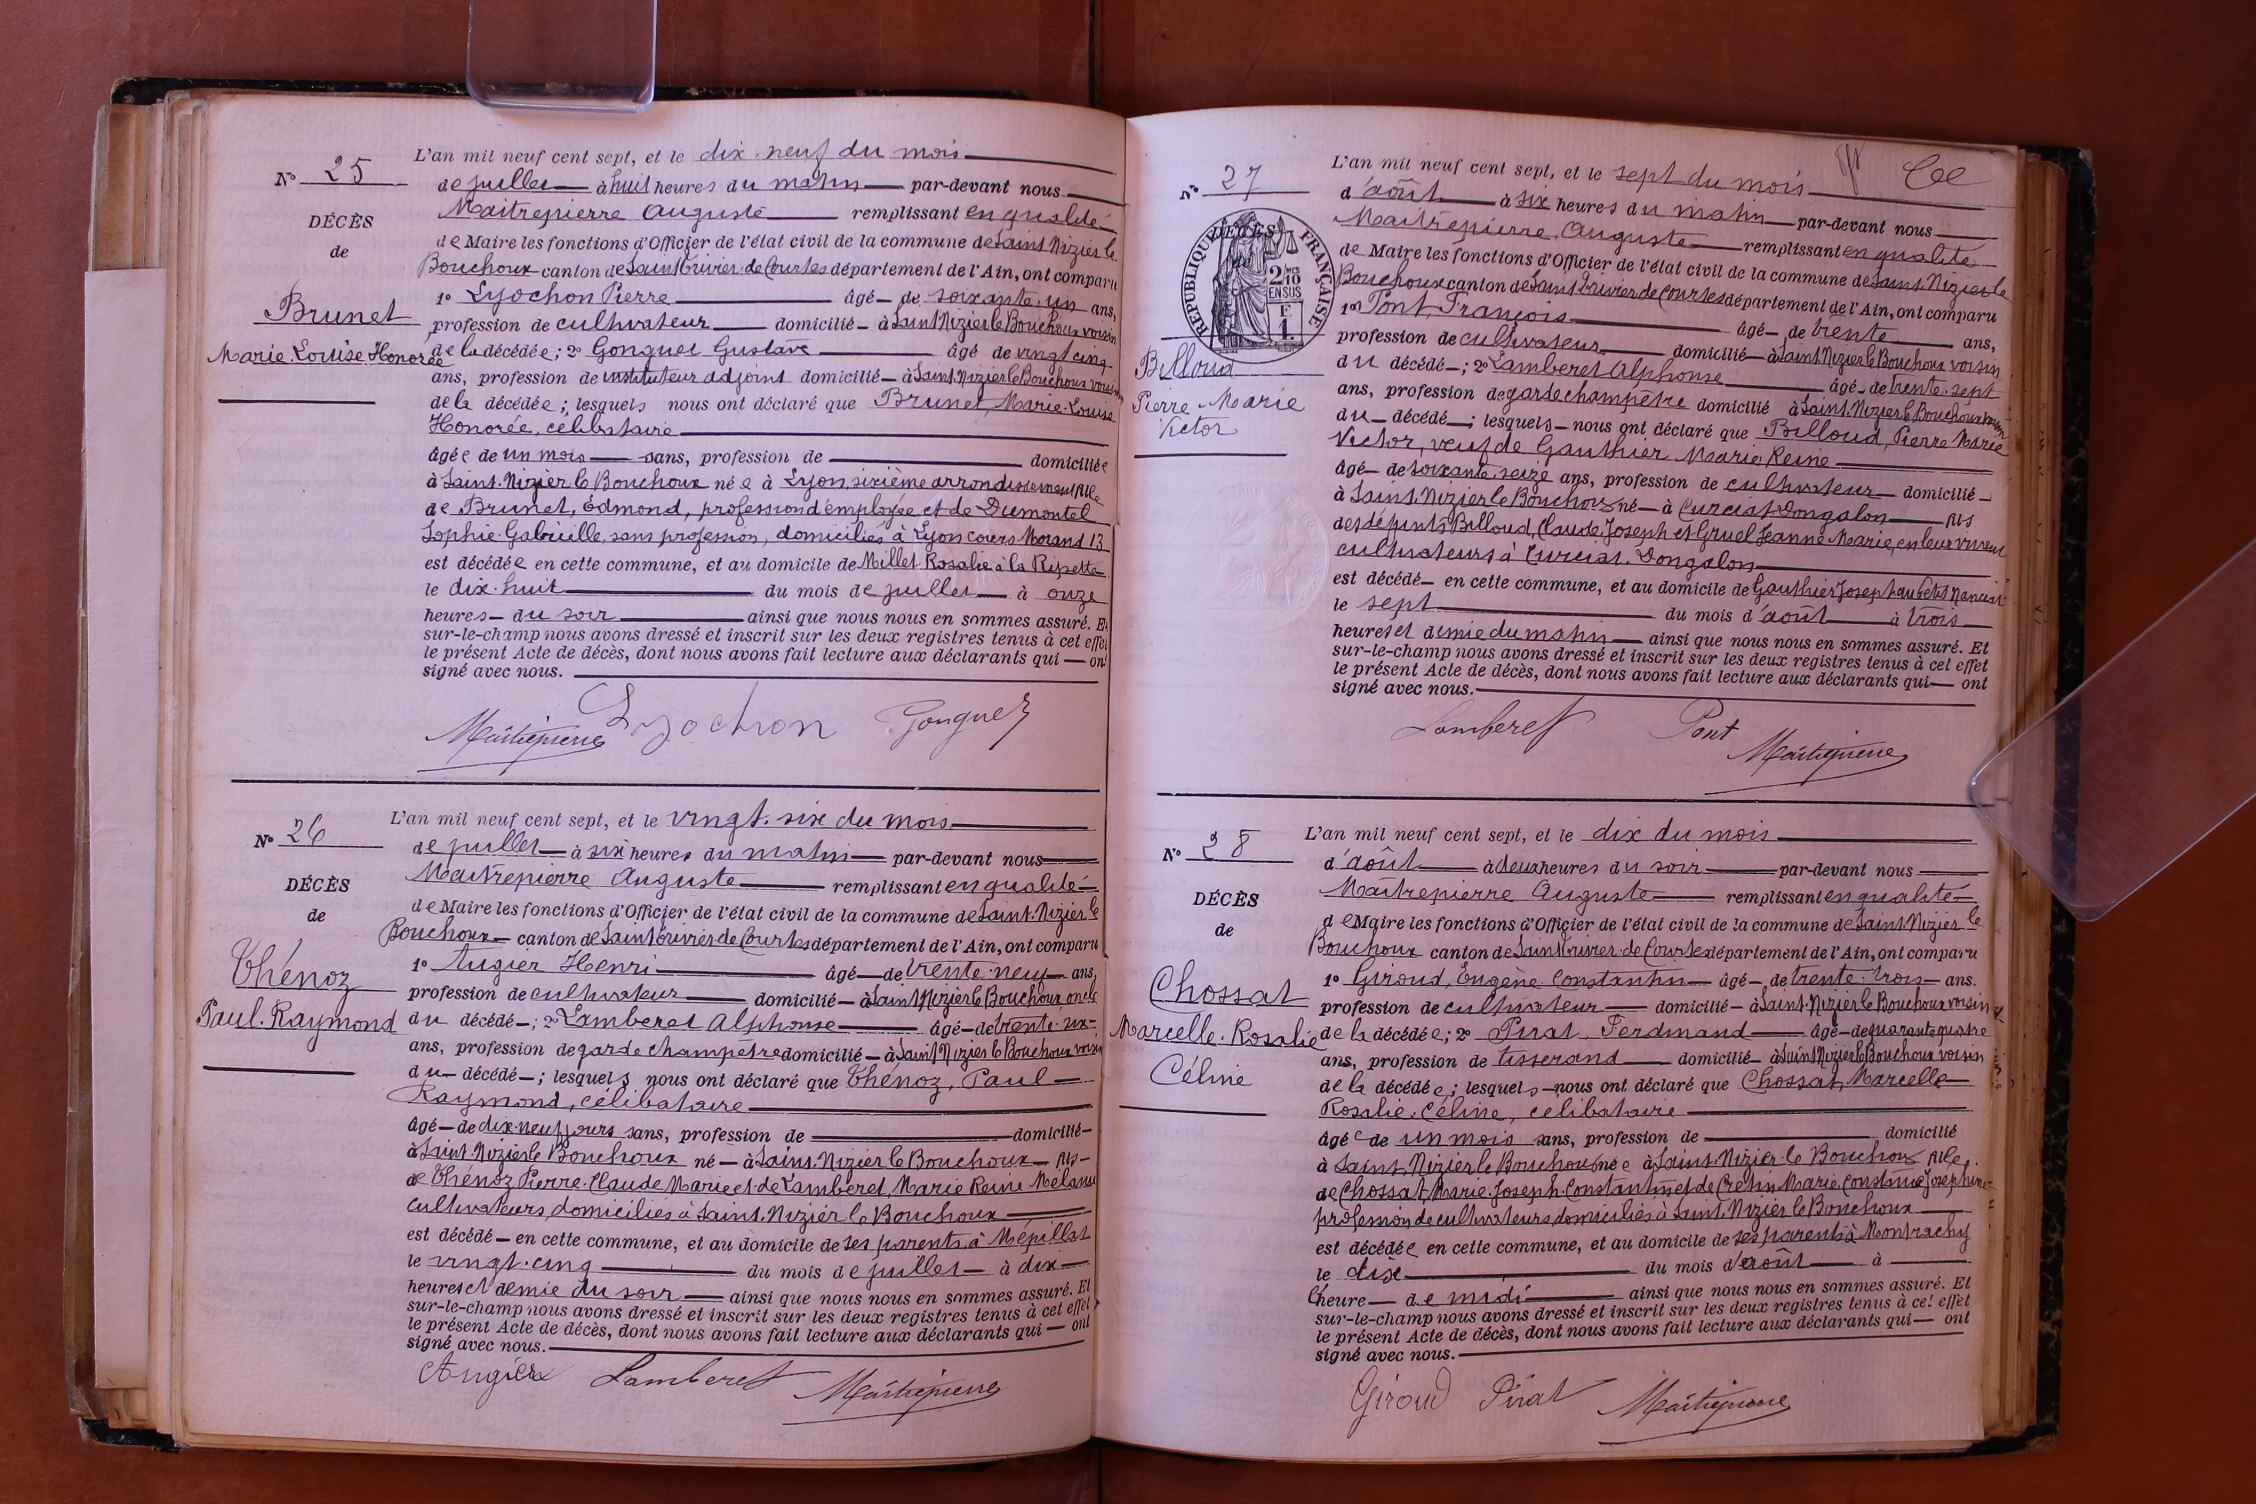 N° 25
DÉCÈS
de
Brunet
Marie Louise Honorée
L'an mil neuf cent sept, et le dix-neuf du mois
de juillet à huit heures du matin par-devant nous
Maitrepierre Auguste remplissant en qualité
de Maire les fonctions d'Officier de l'état civil de la commune de Saint-Nizier le
Bouchoux canton de Saint Trivier-de-Courtes département de l'Ain, ont comparu
1° Lyochon Pierre âgé de soixante-un ans,
profession de cultivateur domicilié à Saint Nizier le Bouchoux voisin
de la décédée; 2° Gonguet Gustave âgé de vingt cinq
ans, profession de instituteur adjoint domicilié à Saint-Nizier le Bouchoux voisin
de la décédée; lesquels nous ont déclaré que Brunet, Marie-Louise
Honorée, célibataire
âgée de un mois sans, profession de domiciliée
à Saint-Nizier le Bouchoux née à Lyon, sixième arrondissement fille
de Brunet, Édmond, profession d'employée et de Dumontel
Sophie Gabrielle, sans profession, domiciliés à Lyon cours Morand 13
est décédée en cette commune, et au domicile de Millet Rosalie à la Ripette
le dix-huit du mois de juillet à onze
heures du soir ainsi que nous nous en sommes assuré. Et
sur-le-champ nous avons dressé et inscrit sur les deux registres tenus à cet effet
le présent Acte de décès, dont nous avons fait lecture aux déclarants qui ont
signé avec nous.
Maitrepierre Lyochon Gonguet
N° 26
DÉCÈS
de
Thénoz
Paul-Raymond
L'an mil neuf cent sept, et le vingt-six du mois
de juillet à six heures du matin par-devant nous
Maitrepierre Auguste remplissant en qualité
de Maire les fonctions d'Officier de l'état civil de la commune de Saint-Nizier le
Bouchoux canton de Saint Trivier de Courtes département de l'Ain, ont comparu
1° Augier Henri âgé de trente-neuf ans,
profession de cultivateur domicilié à Saint Nizier le Bouchoux oncle
du décédé; 2° Lamberet Alphonse âgé de trente-six
ans, profession de garde champêtre domicilié à Saint Nizier le Bouchoux voisin
du décédé; lesquels nous ont déclaré que Thénoz, Paul
Raymond, célibataire
âgé de dix-neuf jours sans, profession de domicilié
à Saint-Nizier le Bouchoux né à Saint-Nizier le Bouchoux fils
de Thénoz Pierre-Claude Marie et de Lamberet, Marie Reine Mélanie
cultivateurs, domiciliés à Saint-Nizier le Bouchoux
est décédé en cette commune, et au domicile de ses parents à Mépillat
le vingt-cinq du mois de juillet à dix
heures et demie du soir ainsi que nous nous en sommes assuré. Et
sur-le-champ nous avons dressé et inscrit sur les deux registres tenus à cet effet
le présent Acte de décès, dont nous avons fait lecture aux déclarants qui ont
signé avec nous.
Augier Lamberet Maitrepierre
N° 27
DÉCÈS
RÉPUBLIQUE FRANÇAISE
2/10 EN SUS
F 1
Billoud
Pierre Marie
Victor
L'an mil neuf cent sept, et le sept du mois
d'août à six heures du matin par-devant nous
Maitrepierre Auguste remplissant en qualité
de Maire les fonctions d'Officier de l'état civil de la commune de Saint-Nizier le
Bouchoux canton de Saint Trivier de Courtes département de l'Ain, ont comparu
1° Pont, François âgé de trente ans,
profession de cultivateur domicilié à Saint Nizier le Bouchoux voisin
du décédé; 2° Lamberet Alphonse âgé de trente-sept
ans, profession de garde champêtre domicilié à Saint-Nizier le Bouchoux voisin
du décédé; lesquels nous ont déclaré que Billoud, Pierre Marie
Victor, veuf de Gauthier Marie Reine
âgé de soixante-seize ans, profession de cultivateur domicilié
à Saint-Nizier le Bouchoux né à Curciat-Dongalon fils
des défunts Billoud, Claude Joseph et Gruel Jeanne Marie, en leur vivant
cultivateurs à Curciat-Dongalon
est décédé en cette commune, et au domicile de Gauthier Joseph au Petit Nanciat
le sept du mois d'août à trois
heures et demie du matin ainsi que nous nous en sommes assuré. Et
sur-le-champ nous avons dressé et inscrit sur les deux registres tenus à cet effet
le présent Acte de décès, dont nous avons fait lecture aux déclarants qui ont
signé avec nous.
Lamberet Pont Maitrepierre
N° 28
DÉCÈS
de
Chossat
Marcelle-Rosalie
Céline
L'an mil neuf cent sept, et le dix du mois
d'août à deux heures du soir par-devant nous
Maitrepierre Auguste remplissant en qualité
de Maire les fonctions d'Officier de l'état civil de la commune de Saint-Nizier le
Bouchoux canton de Saint Trivier-de Courtes département de l'Ain, ont comparu
1° Giroud, Eugène Constantin âgé de trente-trois ans.
profession de cultivateur domicilié à Saint-Nizier le Bouchoux voisin
de la décédée; 2° Pirat Ferdinand âgé de quarante quatre
ans, profession de tisserand domicilié à Saint Nizier le Bouchoux voisin
de la décédée; lesquels nous ont déclaré que Chossat, Marcelle
Rosalie-Céline, célibataire
âgée de un mois sans, profession de domicilié
à Saint-Nizier le Bouchoux née à Saint-Nizier-le Bouchoux fille
de Chossat, Marie-Joseph-Constantin et de Cretin Marie Constance Joséphine
profession de cultivateurs domiciliés à Saint Nizier le Bouchoux
est décédée en cette commune, et au domicile de ses parents à Montrachy
le dix du mois d'août à
l'heure de midi ainsi que nous nous en sommes assuré. Et
sur-le-champ nous avons dressé et inscrit sur les deux registres tenus à cet effet
le présent Acte de décès, dont nous avons fait lecture aux déclarants qui ont
signé avec nous.
Giroud Pirat Maitrepierre